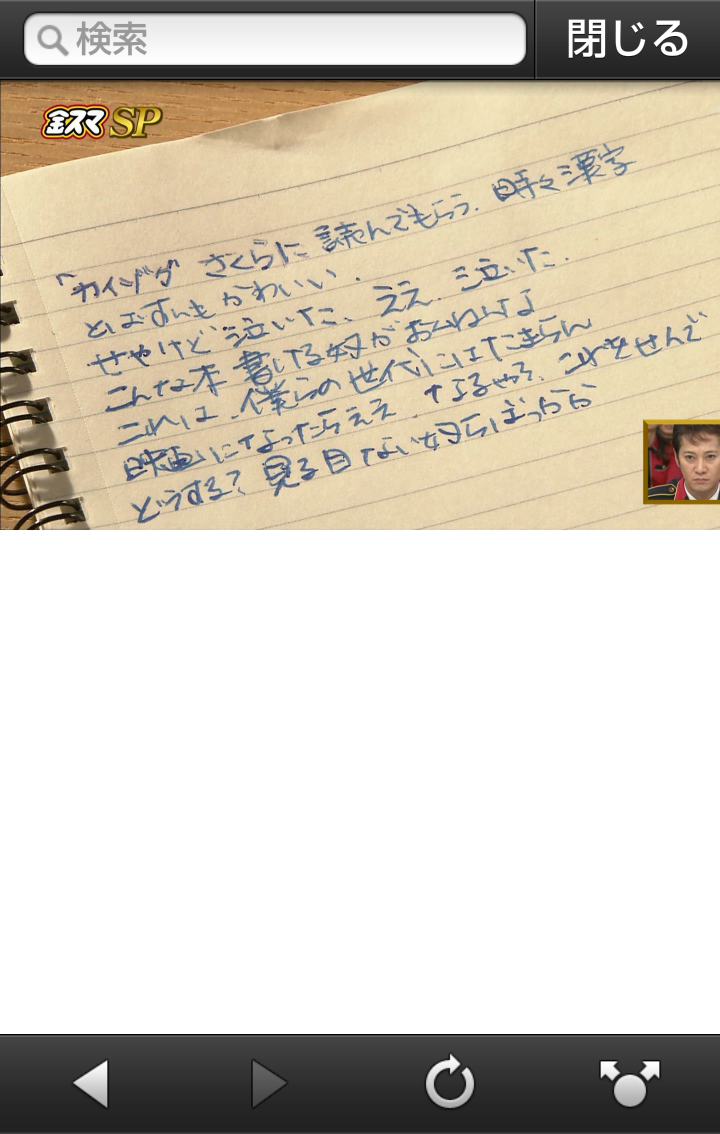 検索
閉じる
金スマSP
"カイジダ さくらに 読んでもらう. 時々漢字
とばすんも かわいい.
せやけど 泣いた. ええ. 泣いた.
こんな本 書ける奴がおんねんな
これは、僕らの世代にはたまらん
映画になったらええ. なるやろ. これをせんで
どうする? 見る目ない奴らばっちゃら